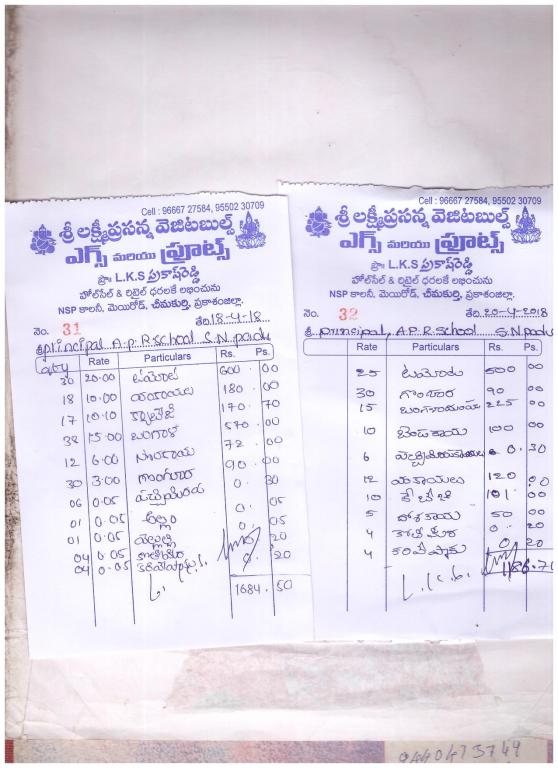 Cell : 96667 27584, 95502 30709
శ్రీ లక్ష్మీప్రసన్న వెజిటబుల్స్
ఎగ్స్ మరియు ఫ్రూట్స్
ప్రొ॥ L.K.S ప్రకాష్‌రెడ్డి
హోల్‌సేల్ & రిటైల్ ధరలకే లభించును
NSP కాలనీ, మెయిన్‌రోడ్, చీమకుర్తి, ప్రకాశంజిల్లా.
నెం. 31 తేది 18-4-18
శ్రీ principal A.P.R School S.N.padu
Qty Rate Particulars Rs. Ps.
30 20.00 టమోట 600 00
18 10.00 180 00
17 10.10 క్యాబేజి 170 70
38 15.00 బంగాళ 570 00
12 6.00 72 00
30 3.00 గొంగూర 90 00
06 0.05 పచ్చిమిరప 0 30
01 0.05 అల్లం 0 05
01 0.05 0 05
04 0.05 కొతిమీర 0 20
04 0.05 0 20
1684 . 50
Cell : 96667 27584, 95502 30709
శ్రీ లక్ష్మీప్రసన్న వెజిటబుల్స్
ఎగ్స్ మరియు ఫ్రూట్స్
ప్రొ॥ L.K.S ప్రకాష్‌రెడ్డి
హోల్‌సేల్ & రిటైల్ ధరలకే లభించును
NSP కాలనీ, మెయిన్‌రోడ్, చీమకుర్తి, ప్రకాశంజిల్లా.
నెం. 32 తేది 20-4-2018
శ్రీ principal, A.P.R School S.N padu
Rate Particulars Rs. Ps.
25 టమోటు 500 00
30 గొంగూర 90 00
15 225 00
10 బెండకాయ 100 00
6 0.30
12 120 00
10 కేబేజి 101 00
5 దోశకాయ 50 00
4 కొతిమీర 0 20
4 కరివేపాకు 0 20
L.K.S.
1186.70
9440473749